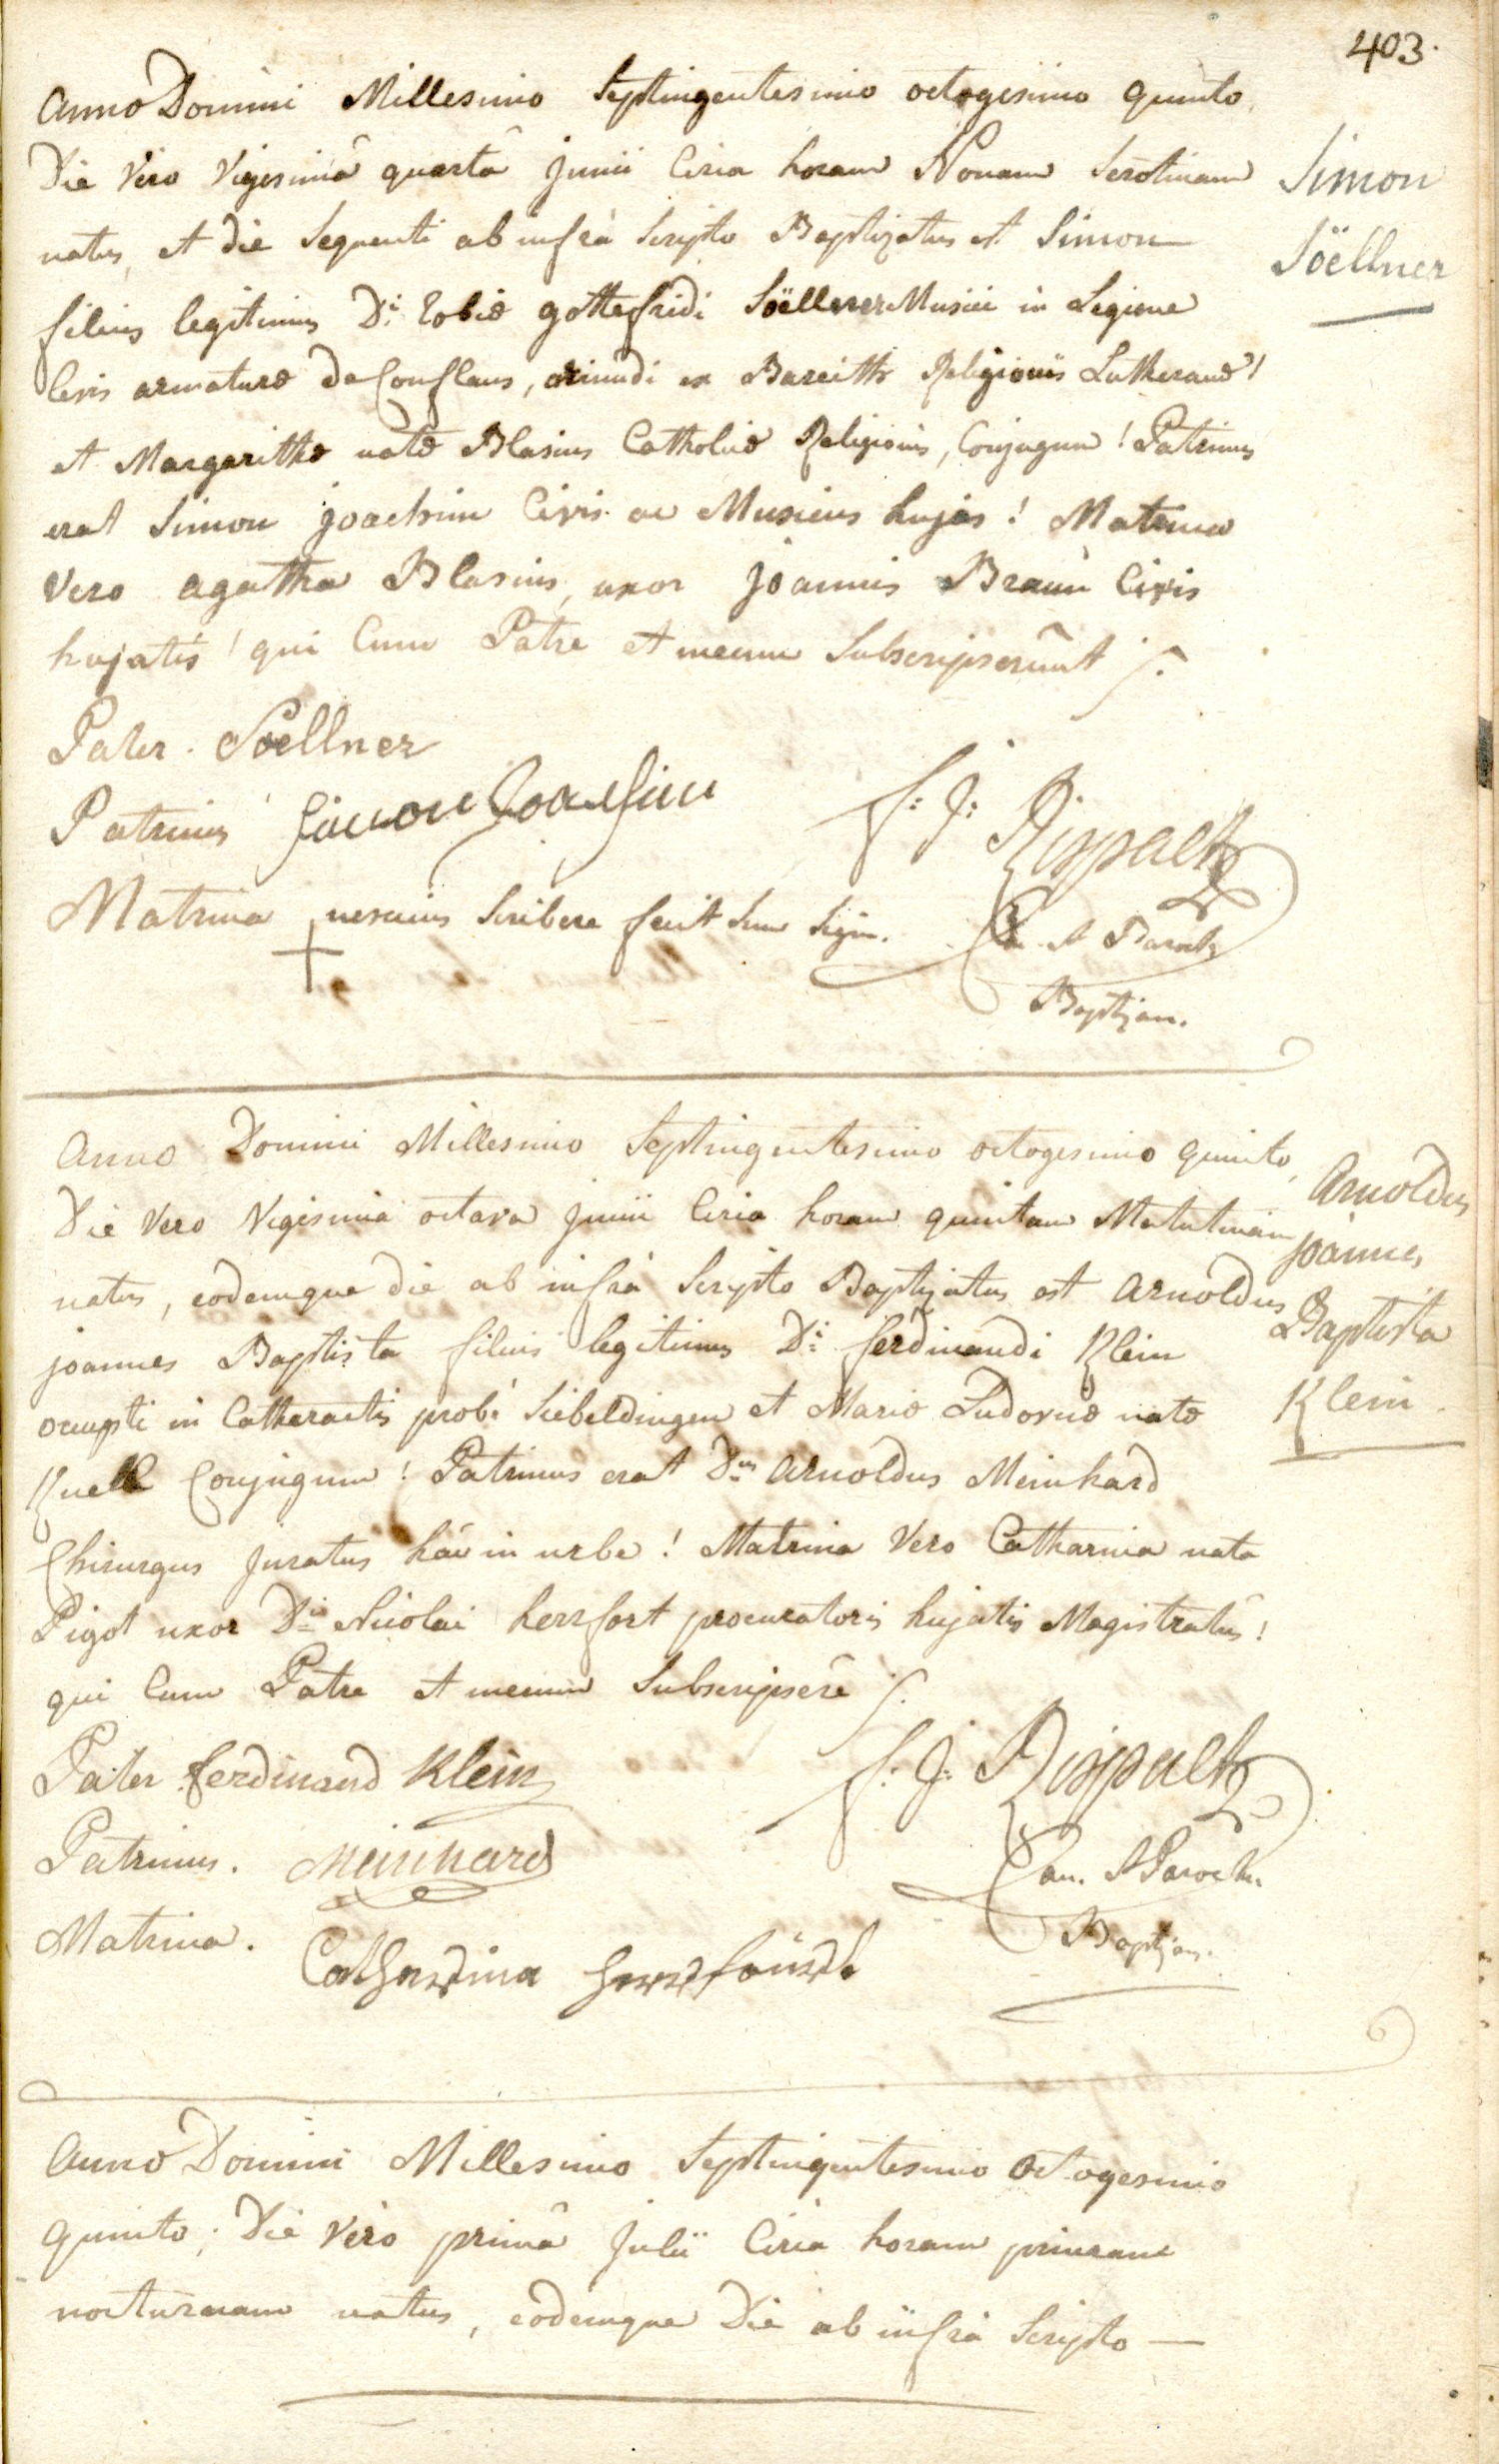 403.
Anno Domini Millesimo Septingentesimo octogesimo quinto,
Die Vero Vigesimâ quartâ Junii Circa horam Nonam Serotinam
natus, et die Sequenti ab infrà Scripto Baptizatus est Simon
Simon
Söellner
filius legitimus Di: Tobiæ gottefridi Söellner Musici in Legione
levis armaturæ de Conflans, oriundi ex Bareith Religionis Lutheranæ!
et Margarithæ natæ Blasius Catholicæ Religionis, Conjugum! Patrinus
erat Simon joachim Civis ac Musicus hujas! Matrina
Vero agatha Blasius, uxor joannis Braun Civis
hujatis! qui Cum Patre et mecum Subscripserûnt
Pater. Söellner
Patrinus Simon Joachim
Matrina + nescius Scribere fecit Suum Sign.
f: J: Rispalck
Can. et Paroch
Baptizans.
Anno Domini Millesimo Septingentesimo octogesimo quinto,
Die Vero Vigesima octava Junii Circa horam quintam Matutinam
natus, eodemque die ab infrà Scripto Baptizatus est Arnoldus
joannes Baptista filius legitimus Di: ferdinandi Klein
Arnoldus
joannes
Baptista
Klein.
occupti in Catharactis propè Siebeldingen et Mariæ Ludovicæ natæ
Kuell Conjugum! Patrinus erat Dnus Arnoldus Meinhard
Chirurgus Juratus hâc in urbe! Matrina Vero Catharina nata
Pigot uxor Di Nicolai herrfort procuratoris hujatis Magistratûs!
qui Cum Patre et mecum Subscripserê
Pater ferdinand Klein
Patrinus. Meinhard
Matrina. Catharina Herrfourdt
f: J: Rispalck
Can. et Paroch.
Baptizans.
Anno Domini Millesimo Septingentesimo Octogesimo
quinto; Die Vero primâ Julii Circa horam primam
nocturnam natus, eodemque Die ab infrà Scripto —